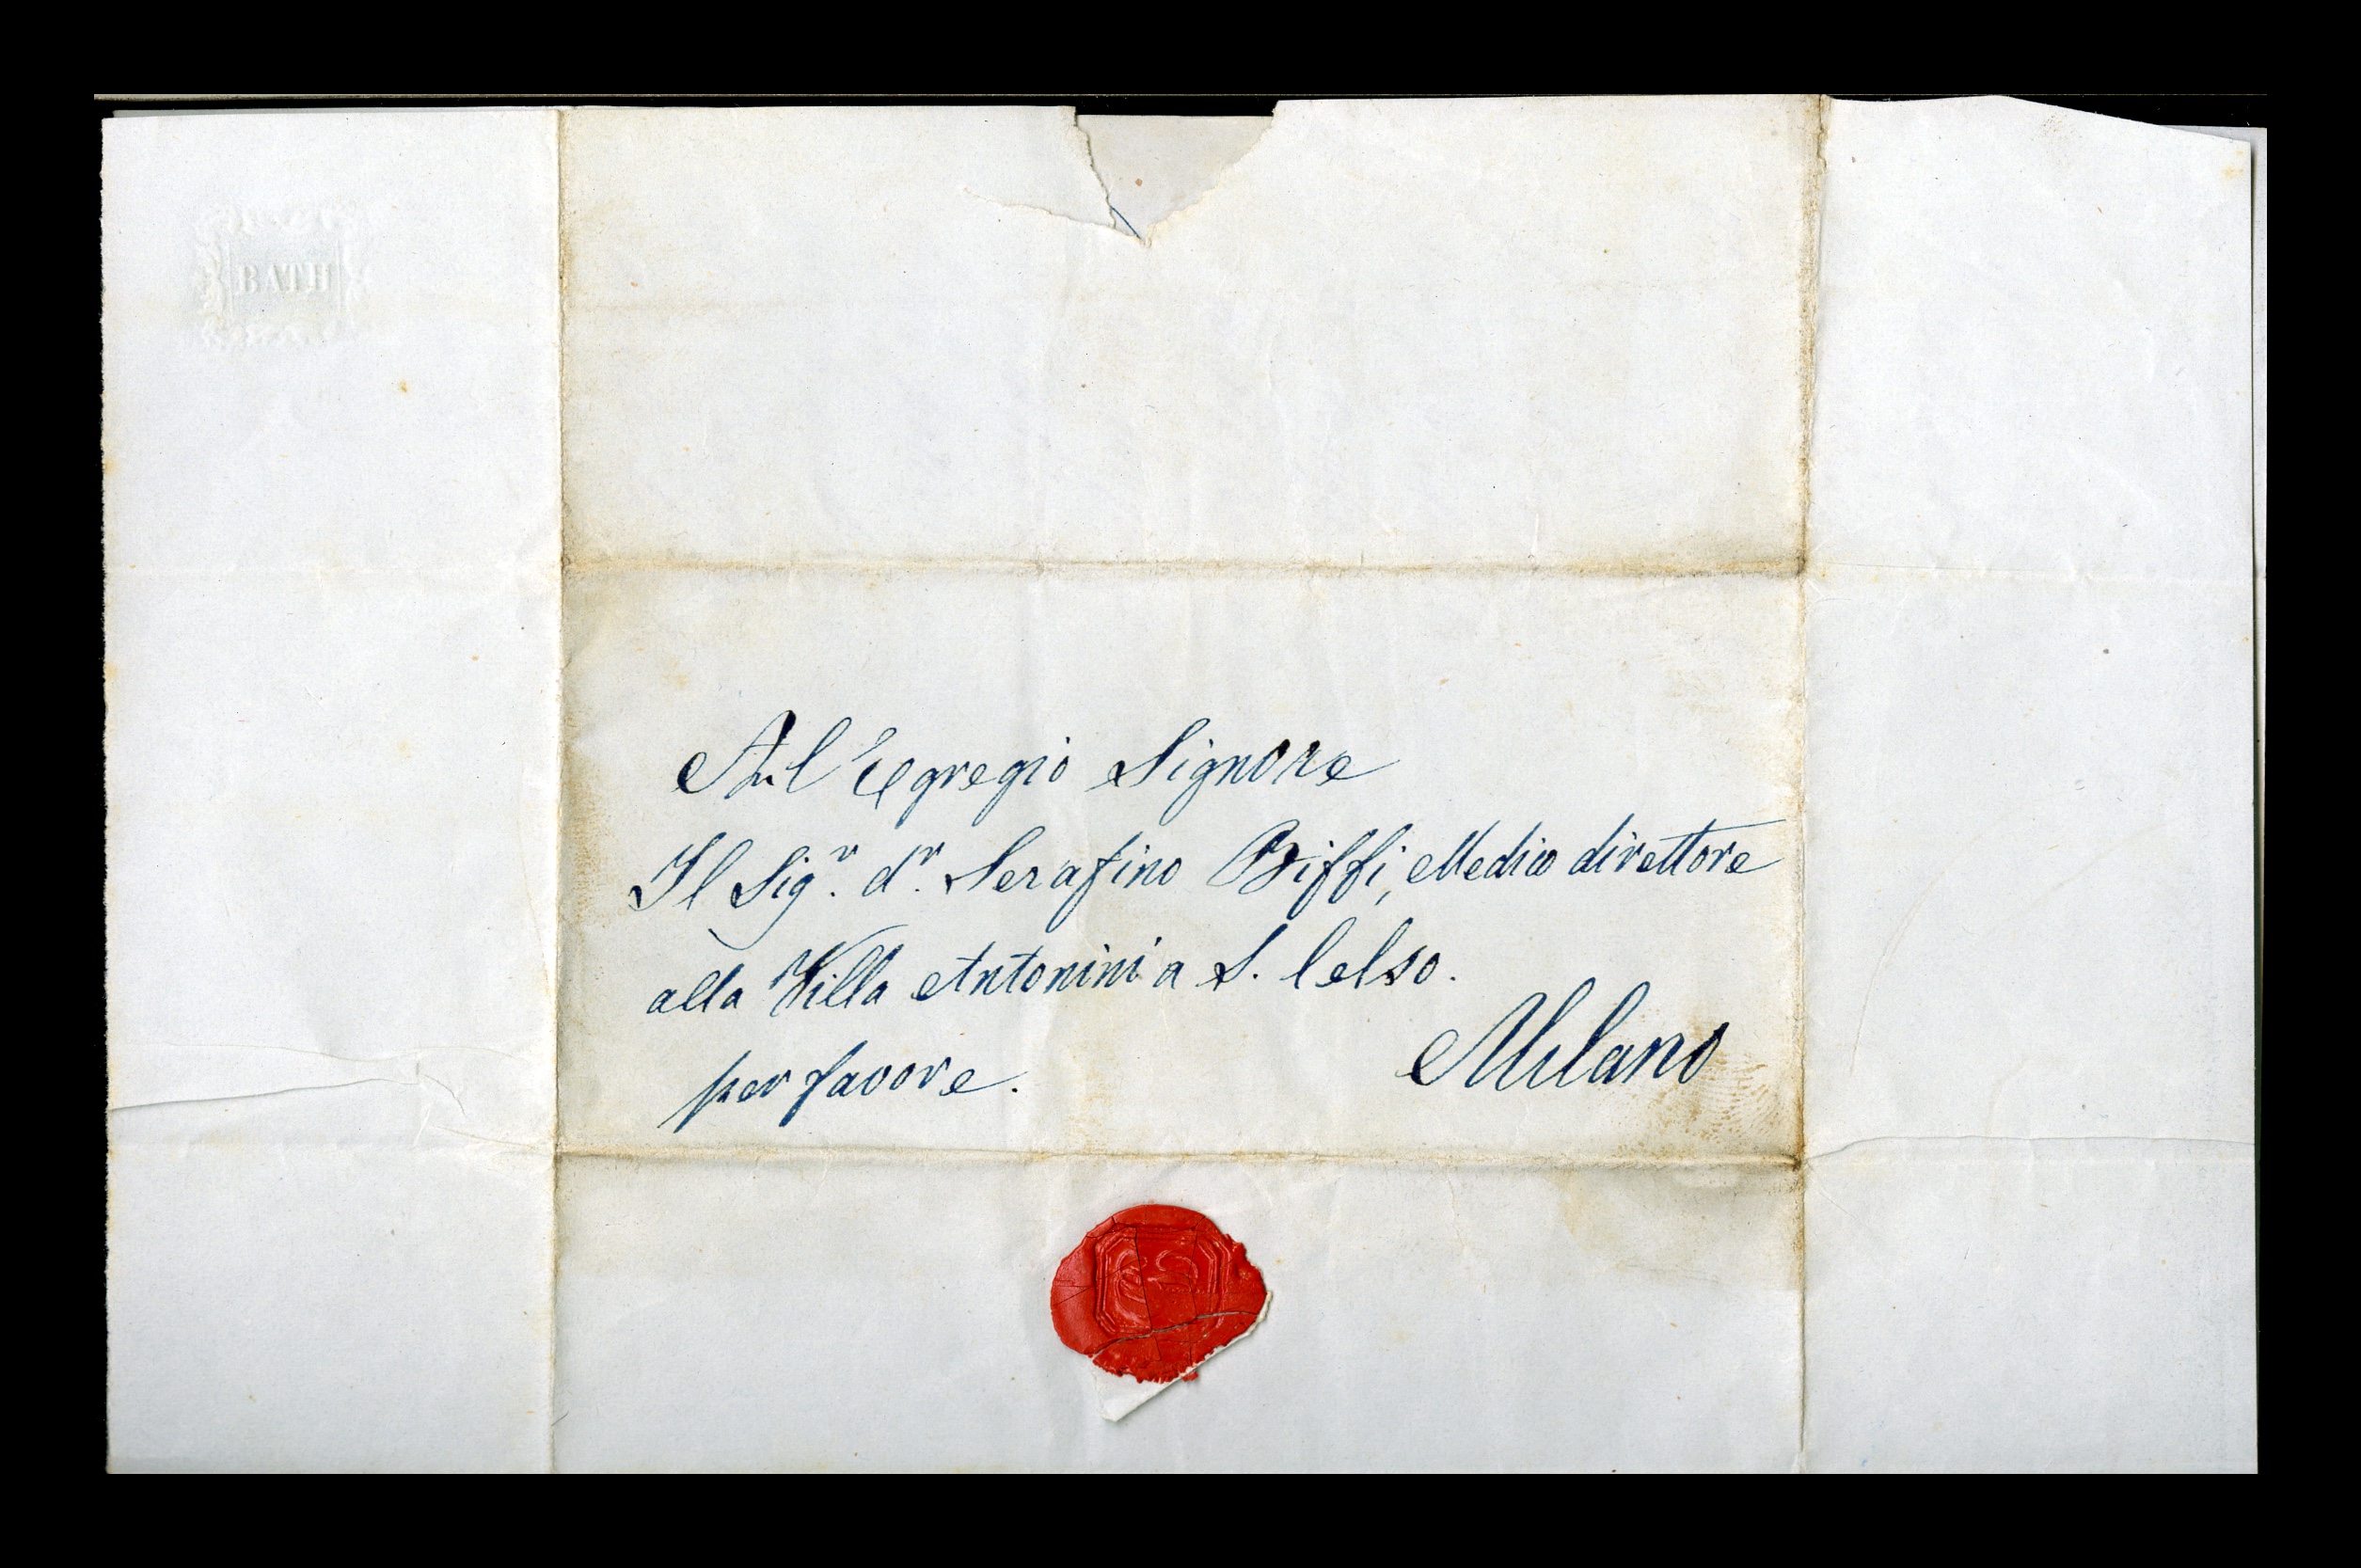 BATH
All'Egregio Signore
Il Sigr. dr. Serafino Biffi, Medico direttore
alla Villa Antonini a S. Celso.
Milano
per favore.